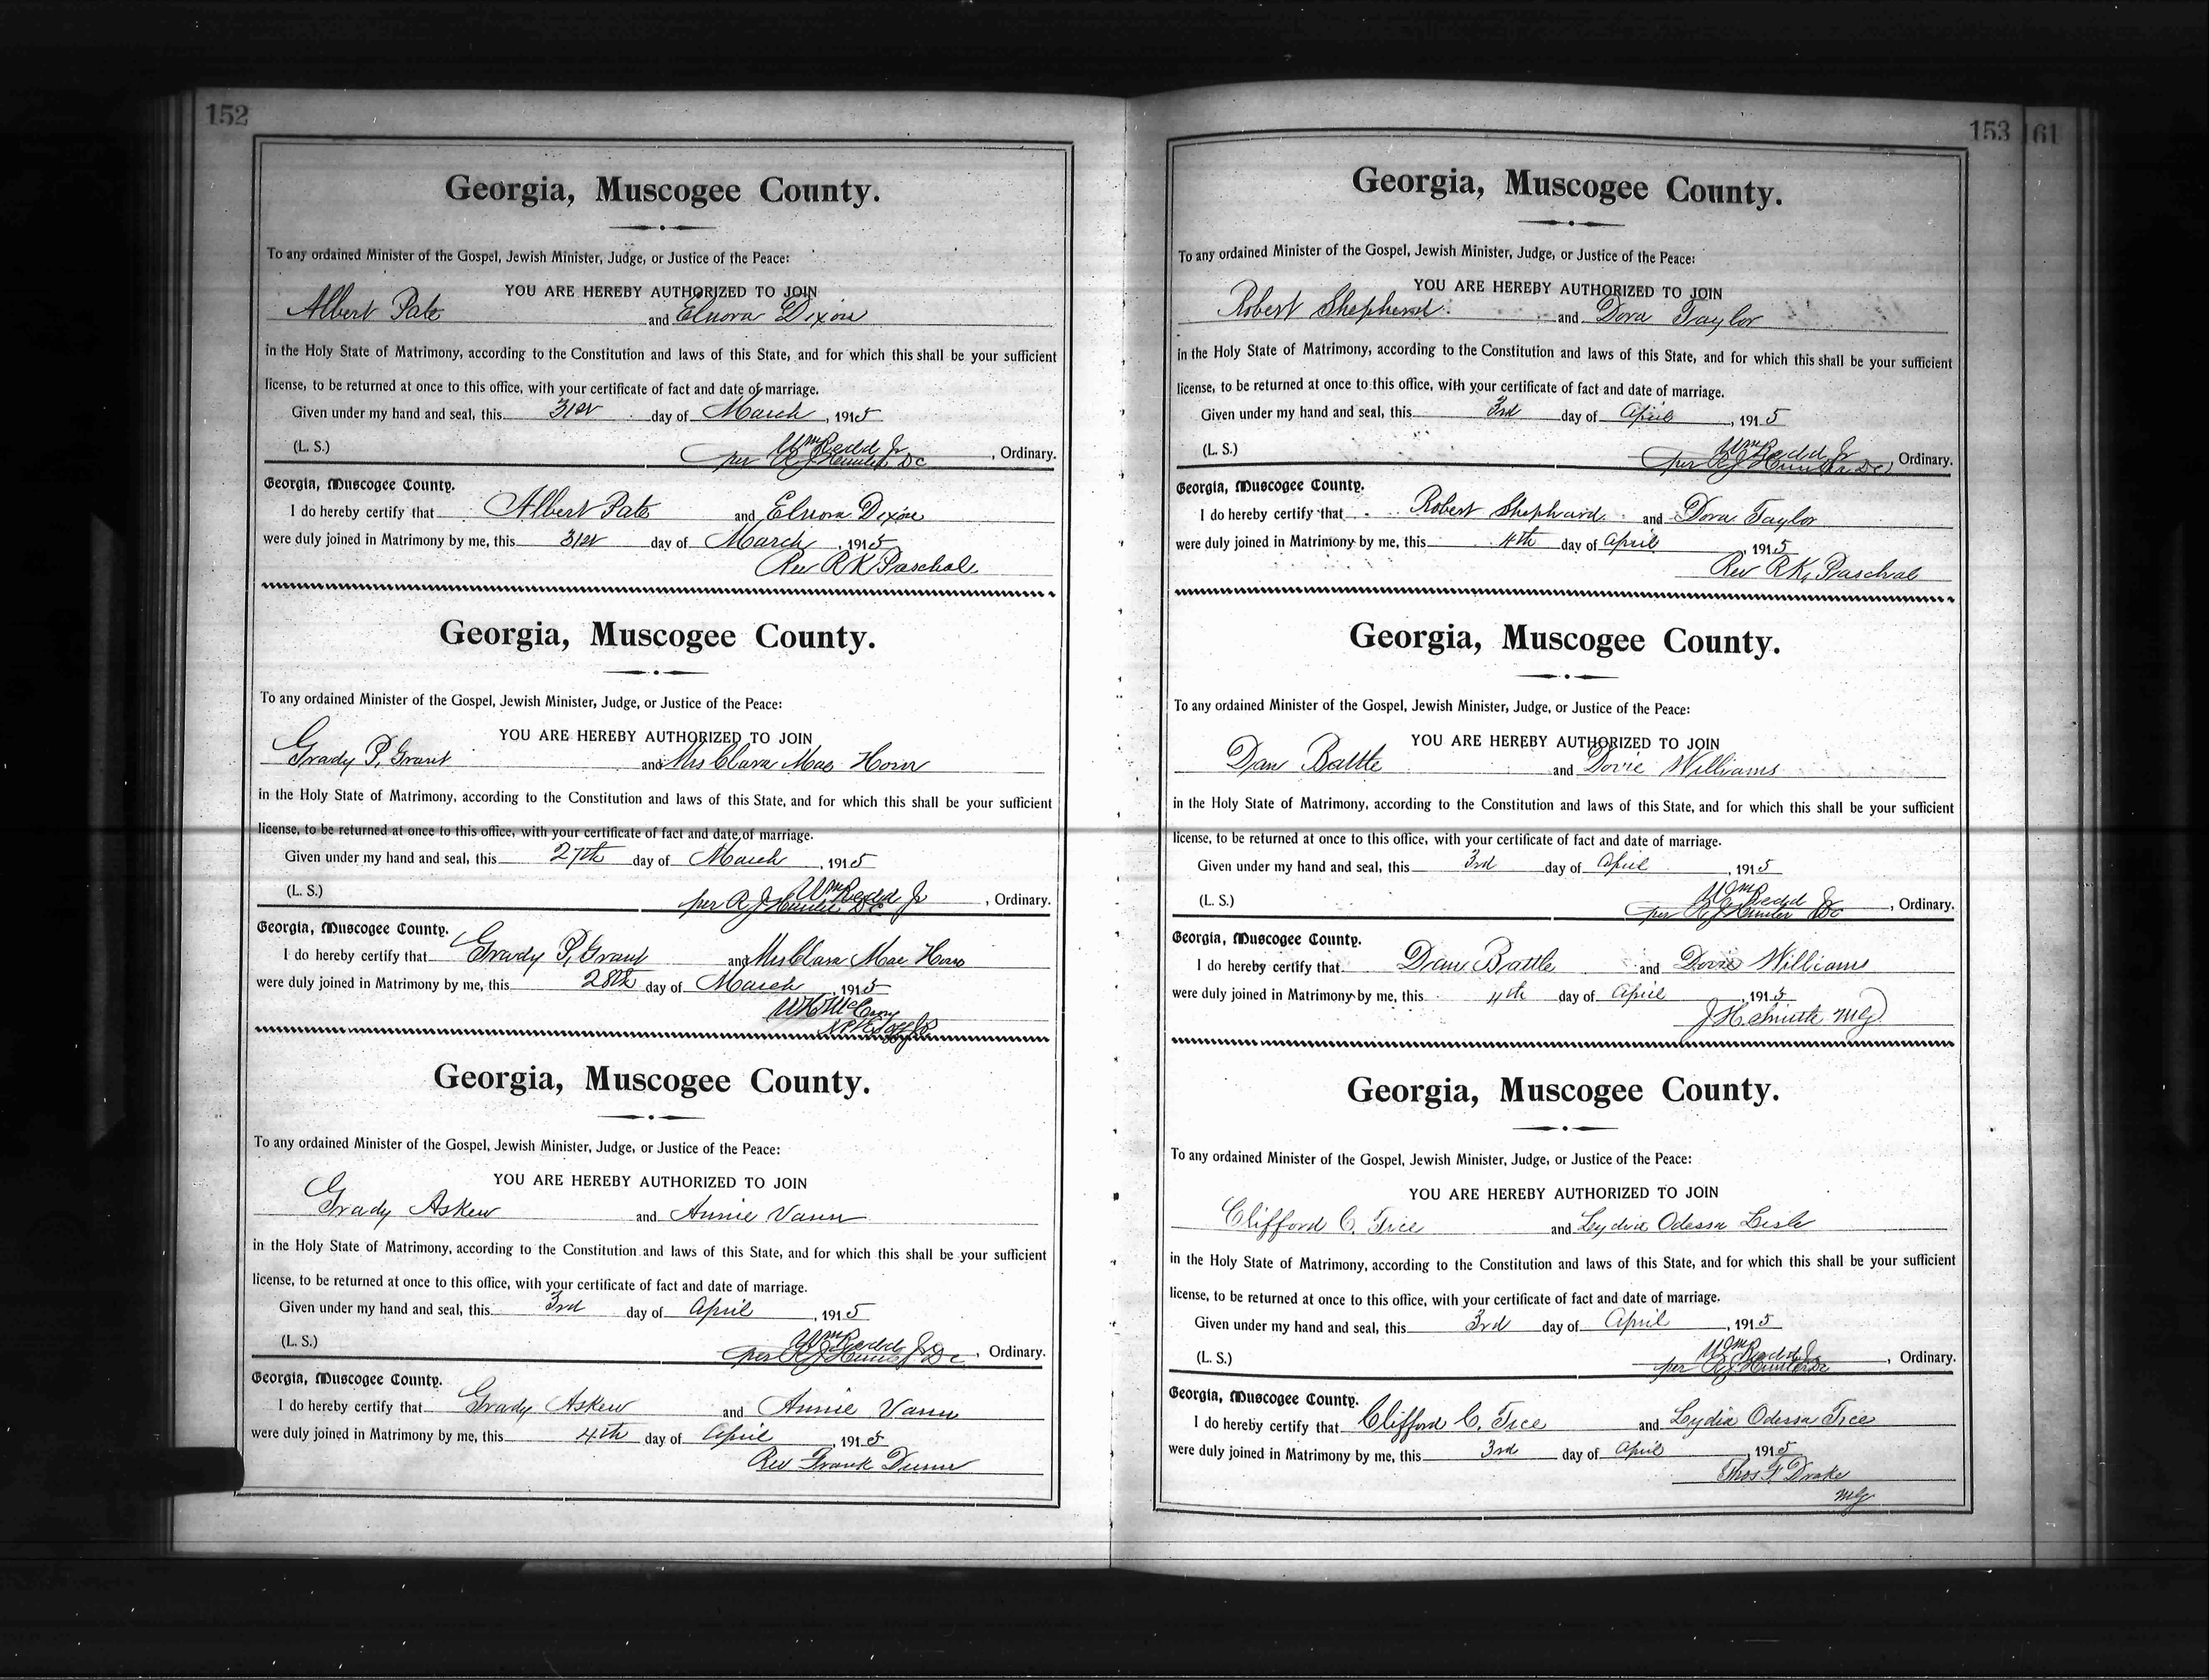 152
Georgia, Muscogee County.
To any ordained Minister of the Gospel, Jewish Minister, Judge, or Justice of the Peace:
YOU ARE HEREBY AUTHORIZED TO JOIN
Albert Pate and Elnora Dixon
in the Holy State of Matrimony, according to the Constitution and laws of this State, and for which this shall be your sufficient
license, to be returned at once to this office, with your certificate of fact and date of marriage.
Given under my hand and seal, this 31st day of March, 1915
(L. S.) Wm Redd Jr
per R J Hunter DC, Ordinary.
Georgia, Muscogee County.
I do hereby certify that Albert Pate and Elnora Dixon
were duly joined in Matrimony by me, this 31st day of March, 1915
Rev R K Paschal
Georgia, Muscogee County.
To any ordained Minister of the Gospel, Jewish Minister, Judge, or Justice of the Peace:
YOU ARE HEREBY AUTHORIZED TO JOIN
Grady P. Grant and Mrs Clara Mae Horn
in the Holy State of Matrimony, according to the Constitution and laws of this State, and for which this shall be your sufficient
license, to be returned at once to this office, with your certificate of fact and date of marriage.
Given under my hand and seal, this 27th day of March, 1915
(L. S.) Wm Redd Jr
per R J Hunter DC, Ordinary.
Georgia, Muscogee County.
I do hereby certify that Grady P. Grant and Mrs Clara Mae Horn
were duly joined in Matrimony by me, this 28th day of March, 1915
Georgia, Muscogee County.
To any ordained Minister of the Gospel, Jewish Minister, Judge, or Justice of the Peace:
YOU ARE HEREBY AUTHORIZED TO JOIN
Grady Askew and Annie Vann
in the Holy State of Matrimony, according to the Constitution and laws of this State, and for which this shall be your sufficient
license, to be returned at once to this office, with your certificate of fact and date of marriage.
Given under my hand and seal, this 3rd day of April, 1915
(L. S.) Wm Redd Jr
per R J Hunter DC, Ordinary.
Georgia, Muscogee County.
I do hereby certify that Grady Askew and Annie Vann
were duly joined in Matrimony by me, this 4th day of April, 1915
Rev Frank
153 161
Georgia, Muscogee County.
To any ordained Minister of the Gospel, Jewish Minister, Judge, or Justice of the Peace:
YOU ARE HEREBY AUTHORIZED TO JOIN
Robert Shepherd and Dora Taylor
in the Holy State of Matrimony, according to the Constitution and laws of this State, and for which this shall be your sufficient
license, to be returned at once to this office, with your certificate of fact and date of marriage.
Given under my hand and seal, this 3rd day of April, 1915
(L. S.) Wm Redd Jr
per R J Hunter DC Ordinary.
Georgia, Muscogee County.
I do hereby certify that Robert Shephard and Dora Taylor
were duly joined in Matrimony by me, this 4th day of April, 1915
Rev R K, Paschal
Georgia, Muscogee County.
To any ordained Minister of the Gospel, Jewish Minister, Judge, or Justice of the Peace:
YOU ARE HEREBY AUTHORIZED TO JOIN
Dan Battle and Dovie Williams
in the Holy State of Matrimony, according to the Constitution and laws of this State, and for which this shall be your sufficient
license, to be returned at once to this office, with your certificate of fact and date of marriage.
Given under my hand and seal, this 3rd day of April, 1915
(L. S.) Wm Redd Jr
per R J Hunter DC, Ordinary.
Georgia, Muscogee County.
I do hereby certify that Dan Battle and Dovie Williams
were duly joined in Matrimony by me, this 4th day of April, 1915
J H Smith MG
Georgia, Muscogee County.
To any ordained Minister of the Gospel, Jewish Minister, Judge, or Justice of the Peace:
YOU ARE HEREBY AUTHORIZED TO JOIN
Clifford C. Tice and Lydia Odessa Lisle
in the Holy State of Matrimony, according to the Constitution and laws of this State, and for which this shall be your sufficient
license, to be returned at once to this office, with your certificate of fact and date of marriage.
Given under my hand and seal, this 3rd day of April, 1915
(L. S.) Wm Redd Jr
per R J Hunter DC, Ordinary.
Georgia, Muscogee County.
I do hereby certify that Clifford C. Tice and Lydia Odessa Tice
were duly joined in Matrimony by me, this 3rd day of April, 1915
Thos F Drake
MG